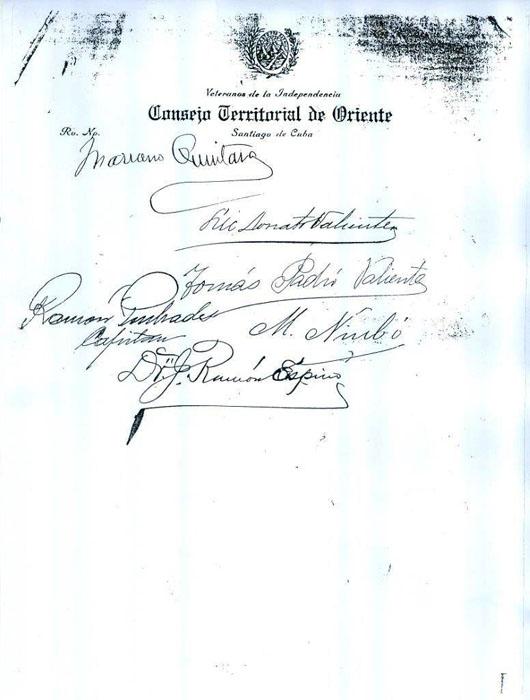 Veteranos de la Independencia
Consejo Territorial de Oriente
Santiago de Cuba
Ro. No.
Mariano Quintana
Lic Donato Valiente
Tomás Padró Valiente
Ramón
Capitan
M. Nimbó
Dr. J. Ramón Espino